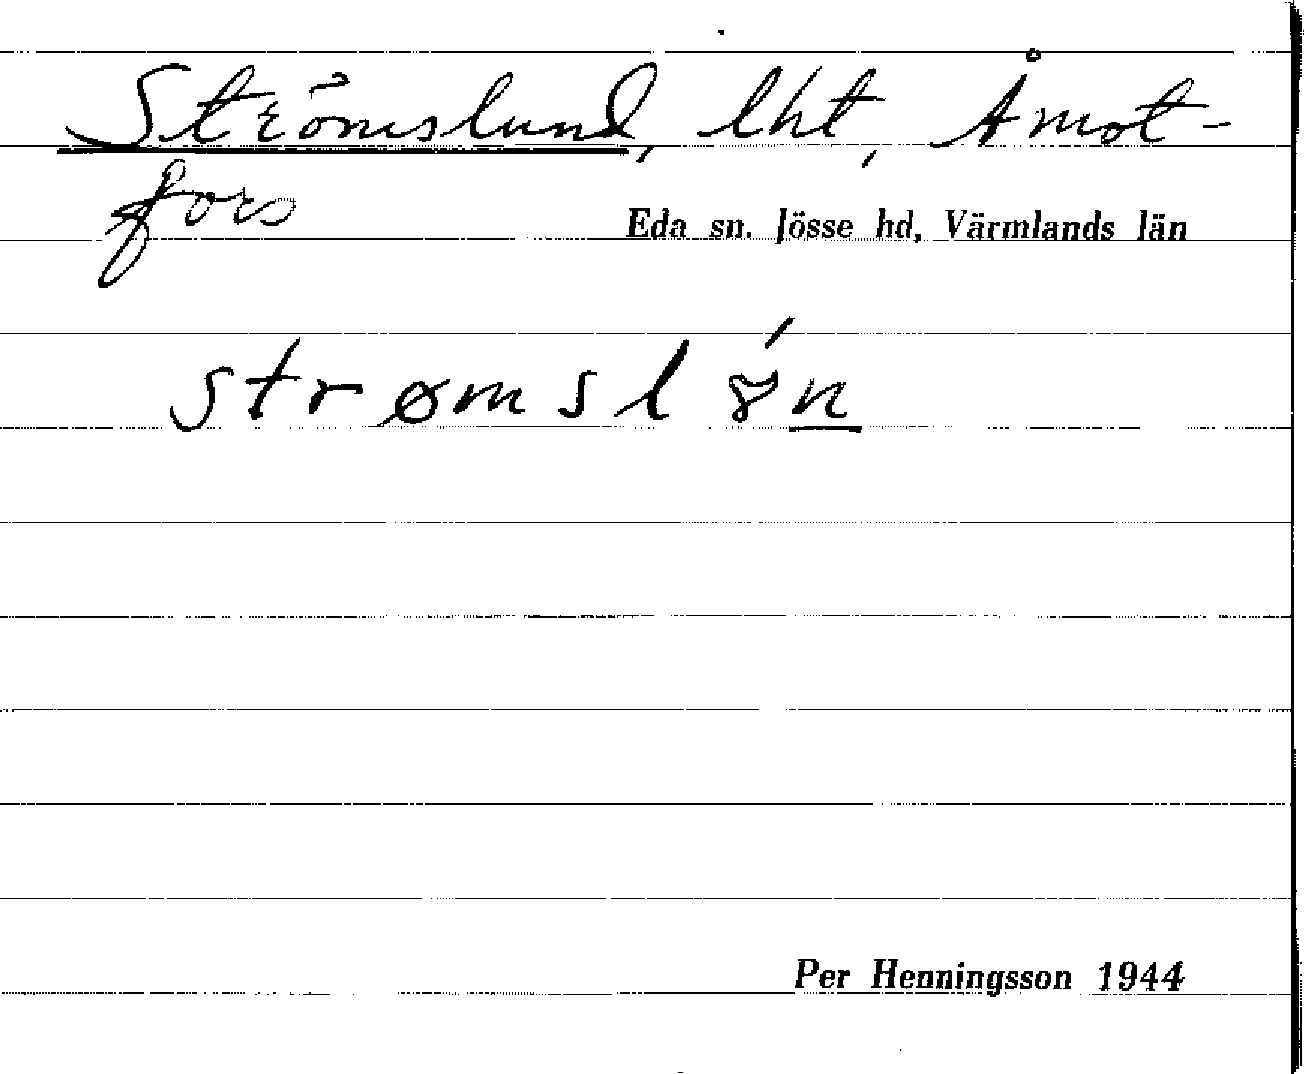 Strömslund, lht, Åmot-
fors
Eda sn. Jösse hd, Värmlands län
strømslɤ́n
Per Henningsson 1944